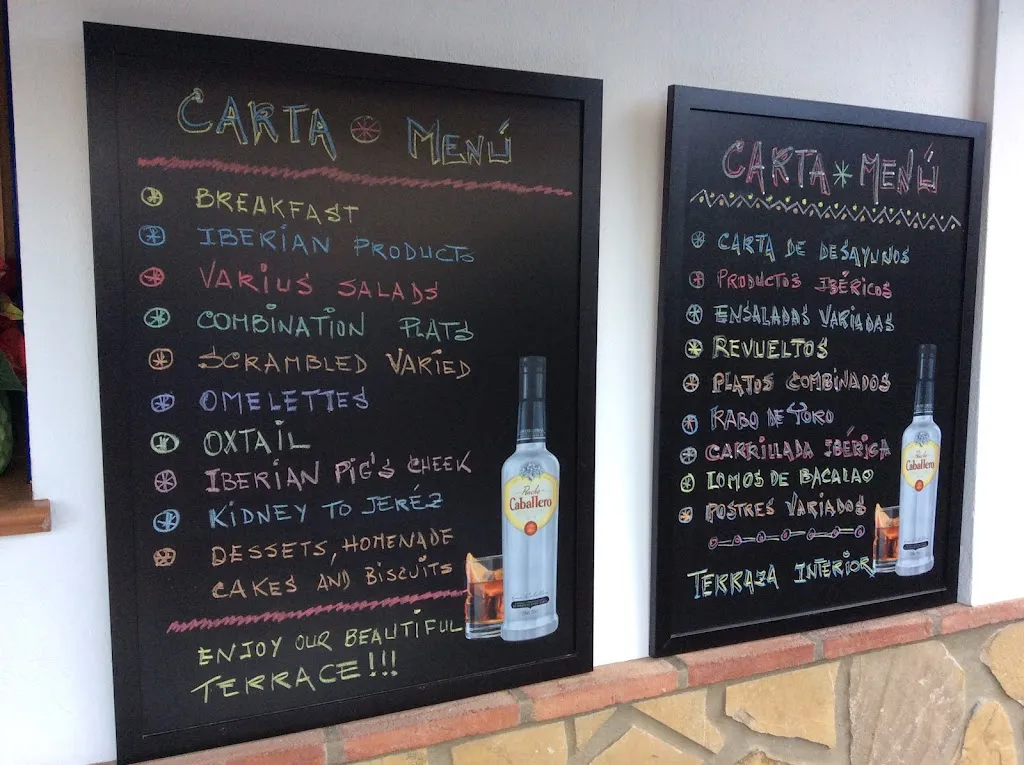 CARTA MENÚ
BREAKFAST
IBERIAN PRODUCTS
VARIUS SALADS
COMBINATION PLATS
SCRAMBLED VARIED
OMELETTES
OXTAIL
IBERIAN PIG'S CHEEK
KIDNEY TO JERÉZ
DESSETS, HOMENADE
CAKES AND BISCUITS
ENJOY OUR BEAUTIFUL
TERRACE!!!
Ponche
Caballero
CARTA MENÚ
CARTA DE DESAYUNOS
PRODUCTOS IBÉRICOS
ENSALADAS VARIADAS
REVUELTOS
PLATOS COMBINADOS
RABO DE TORO
CARRILLADA IBÉRICA
LOMOS DE BACALAO
POSTRES VARIADOS
TERRAZA INTERIOR
Ponche
Caballero